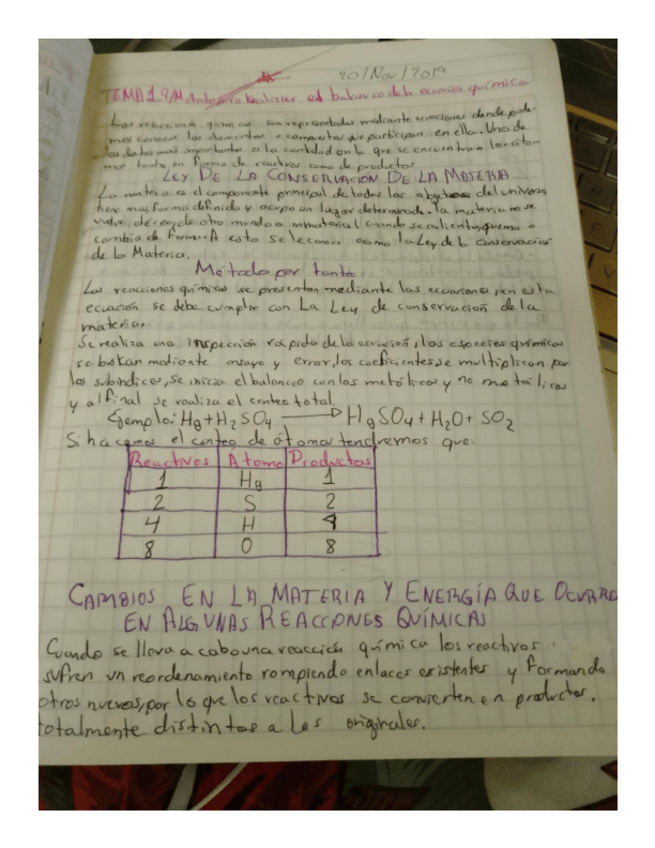 20/Nov/2019
TEMA 19/Metodo para realizar el balanceo de la ecuacion quimica
Las reacciones quimicas son representadas mediante ecuaciones donde pode-
mos conocer los elementos o compuestos que participan en ella. Una de
los datos mas importantes es la cantidad en la que se encuentran los ato-
mos tanto en forma de reactivos como de productos
LEY DE LA CONSERVACION DE LA MATERIA
La materia es el componente principal de todos los objetos del universo
tiene mas forma definida y ocupa un lugar determinado. la materia no se
vuelve de otro mundo o inmaterial cuando se calienta, quema o
cambia de forma. A esto se le conoce como la Ley de la Conservación
de la Materia.
Método por tanteo
Las reacciones químicas se presentan mediante las ecuaciones, en esta
ecuación se debe cumplir con La Ley de conservación de la
materia.
Se realiza una inspección rápida de la ecuación, las especies químicas
se buskan mediante ensayo y error, los coeficientes se multiplican por
los subíndices, se inicia el balanceo con los metálicos y no metálicos
y al final se realiza el conteo total.
Ejemplo: Hg+H₂SO₄ → HgSO₄+H₂O+SO₂
Si hacemos el conteo de átomos tendremos que:
Reactivos Atomo Productos
1 Hg 1
2 S 2
4 H 4
8 O 8
CAMBIOS EN LA MATERIA Y ENERGÍA QUE OCURRE
EN ALGUNAS REACCIONES QUÍMICAS
Cuando se lleva a cabo una reacción química los reactivos
sufren un reordenamiento rompiendo enlaces existentes y formando
otros nuevos, por lo que los reactivos se convierten en productos.
totalmente distintos a los originales.